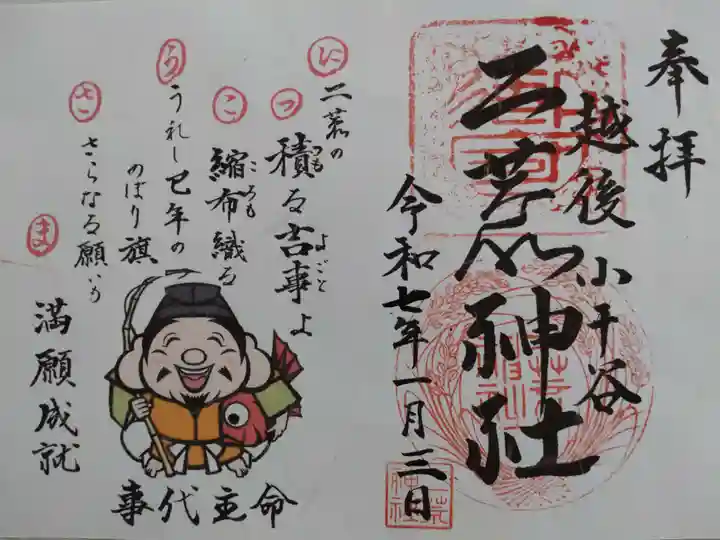 奉拝
越後小千谷
二荒神社
令和七年一月三日
に
二荒の
つ
積る吉事よ
つも
よごと
こ
縮布織る
ころも
う
うれし巳年の
のぼり旗
さ
さらなる願いの
ま
満願成就
事代主命